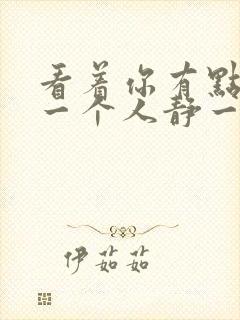 看着你有點
一个人静一
伊茹茹